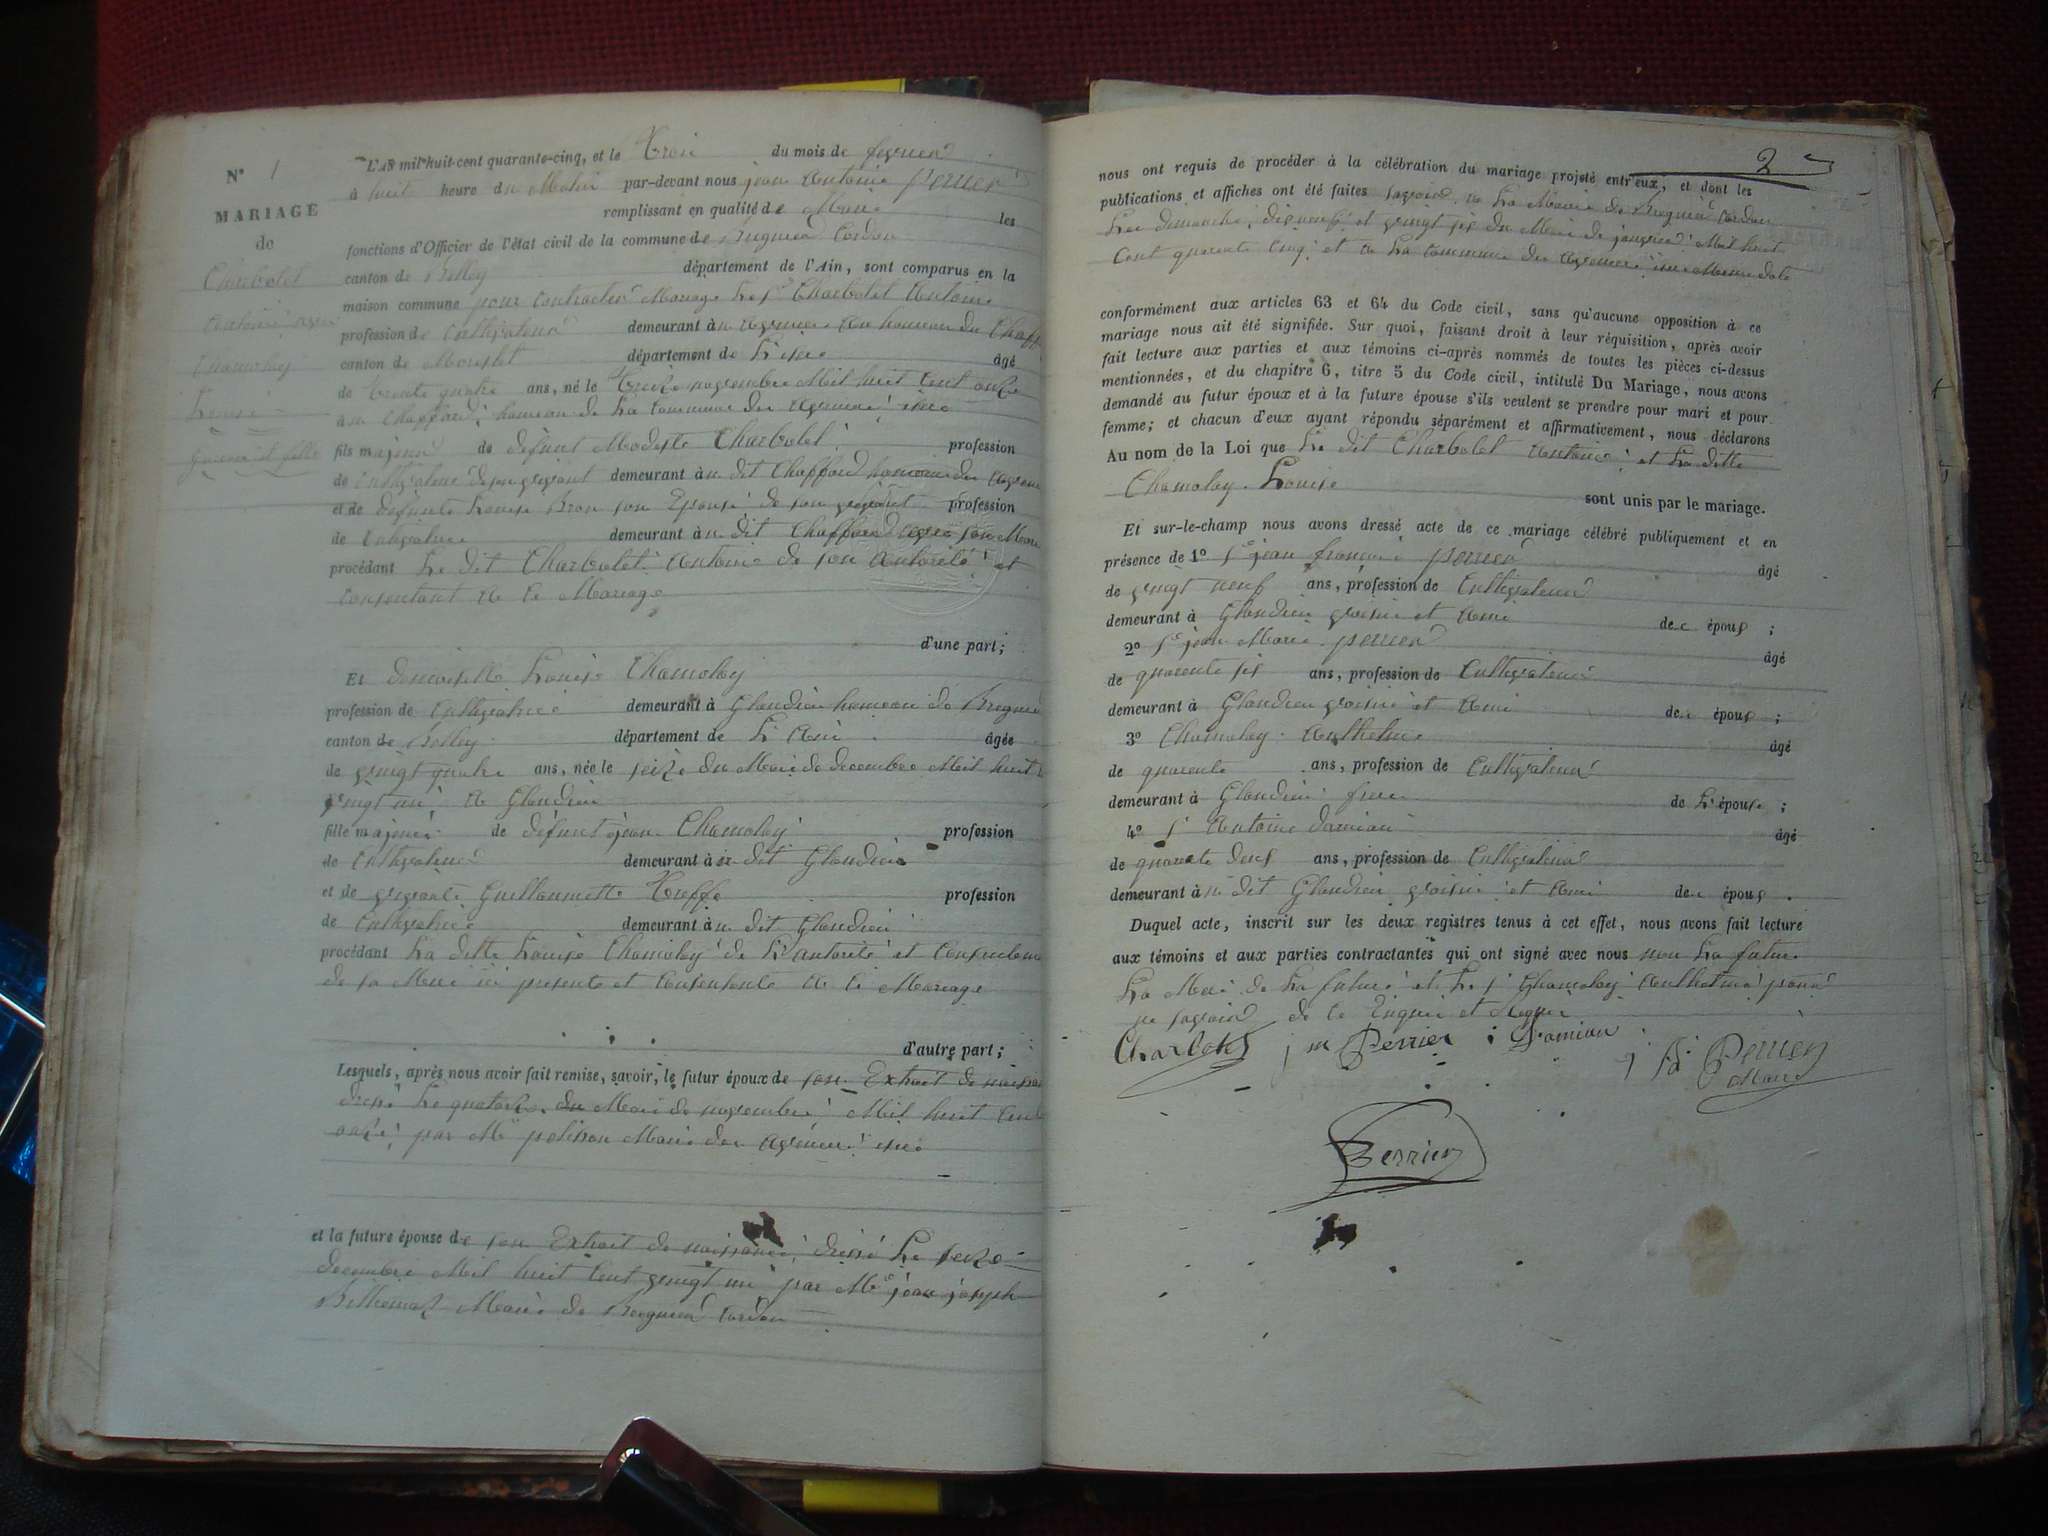 N° 1
MARIAGE
de
Charbolet
Antoine
Chamoley
Louise
L'AN mil huit cent quarante-cinq, et le Trois du mois de fevrier
à huit heure du Matin par-devant nous jean Antoine Perrier
remplissant en qualité de Maire les
fonctions d'Officier de l'état civil de la commune de Bregnier Cordon
canton de Belley département de l'Ain, sont comparus en la
maison commune pour contracter Mariage Le Sr Charbolet Antoine
profession de Cultivateur demeurant à hameau du
canton de Morestel département de L'isere âgé
de trente quatre ans, né le Treize novembre Mil huit Cent onze
hameau de La Commune des Avenieres isere
fils majeur de défunt Modeste Charbolet profession
de Cultivateur de son vivant demeurant à
et de défunte Louise Bron son Epouse de son vivant profession
de Cultivatrice demeurant à
procédant Le dit Charbolet Antoine de son Autorité et
consentant a ce Mariage
d'une part;
Et demoiselle Louise Chamoley
profession de Cultivatrice demeurant à Glandieu hameau de Bregnier
canton de Belley département de L'Ain âgée
de vingt quatre ans, née le seize du Mois de decembre Mil huit
vingt un a Glandieu
fille majeure de défunt jean Chamoley profession
de Cultivateur demeurant à u dit Glandieu
et de vivante Guillaumette Treffe profession
de Cultivatrice demeurant à u dit Glandieu
procédant La ditte Louise Chamoley de L'autorité et Consentement
de sa Mere ici presente et Consentante a ce Mariage
d'autre part;
Lesquels, après nous avoir fait remise, savoir, le futur époux de son Extrait de naissance
dressé Le quatorze du Mois de novembre Mil huit Cent
onze par Mr Maire des Avenieres isere
et la future épouse de son Extrait de naissance dressé Le seize
decembre Mil huit Cent vingt un par Mr jean joseph
Maire de Bregnier Cordon
2
nous ont requis de procéder à la célébration du mariage projeté entr'eux, et dont les
publications et affiches ont été faites savoir a La Mairie de Bregnier Cordon
Les dimanche dixneuf et vingt six du Mois de janvier Mil huit
Cent quarente Cinq et a La Commune des Avenieres Meme date
conformément aux articles 63 et 64 du Code civil, sans qu'aucune opposition à ce
mariage nous ait été signifiée. Sur quoi, faisant droit à leur réquisition, après avoir
fait lecture aux parties et aux témoins ci-après nommés de toutes les pièces ci-dessus
mentionnées, et du chapitre 6, titre 5 du Code civil, intitulé Du Mariage, nous avons
demandé au futur époux et à la future épouse s'ils veulent se prendre pour mari et pour
femme; et chacun d'eux ayant répondu séparément et affirmativement, nous déclarons
Au nom de la Loi que Le dit Charbolet Antoine et La ditte
Chamoley Louise sont unis par le mariage.
Et sur-le-champ nous avons dressé acte de ce mariage célébré publiquement et en
présence de 1° Sr jean françois perrier âgé
de vingt neuf ans, profession de Cultivateur
demeurant à Glandieu voisin et Ami des époux ;
2° Sr jean Marie perrier âgé
de quarente six ans, profession de Cultivateur
demeurant à Glandieu voisin et Ami des époux ;
3° Chamoley Anthelme âgé
de quarente ans, profession de Cultivateur
demeurant à Glandieu frere de L'épouse ;
4° Sr Antoine Damian âgé
de quarente deux ans, profession de Cultivateur
demeurant à u dit Glandieu voisin et Ami des époux .
Duquel acte, inscrit sur les deux registres tenus à cet effet, nous avons fait lecture
aux témoins et aux parties contractantes qui ont signé avec nous non La future
La Mere de La future et Le Sr Chamoley Anthelme pour
ne savoir de ce Enquis et
Charbolet j m Perrier Damian j A Perrier
Maire
Perrier